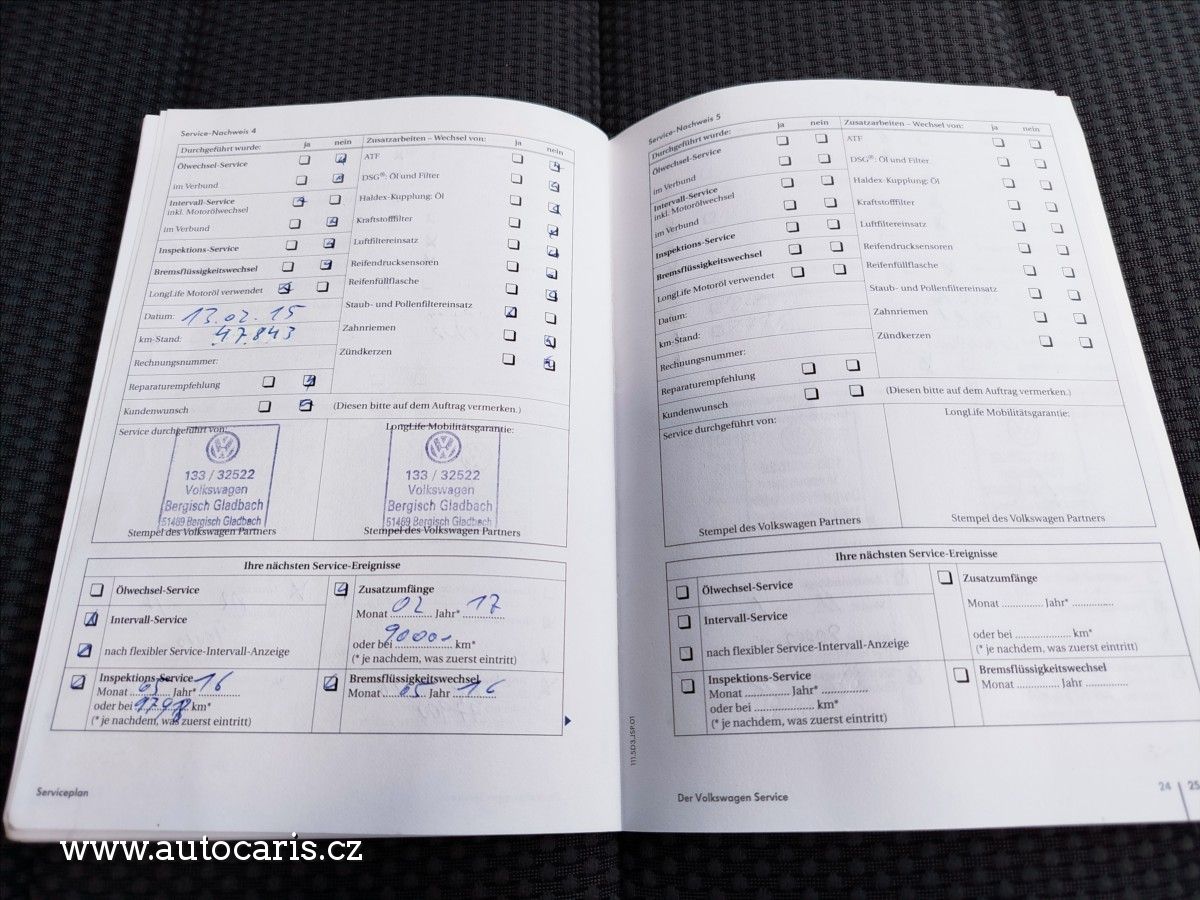 Service-Nachweis 4
Durchgeführt wurde: ja nein
Ölwechsel-Service
im Verbund
Intervall-Service
inkl. Motorölwechsel
im Verbund
Inspektions-Service
Bremsflüssigkeitswechsel
LongLife Motoröl verwendet
Datum: 13.02.15
km-Stand: 47.843
Rechnungsnummer:
Reparaturempfehlung
Kundenwunsch
Zusatzarbeiten – Wechsel von: ja nein
ATF
DSG®: Öl und Filter
Haldex-Kupplung: Öl
Kraftstofffilter
Luftfiltereinsatz
Reifendrucksensoren
Reifenfüllflasche
Staub- und Pollenfiltereinsatz
Zahnriemen
Zündkerzen
(Diesen bitte auf dem Auftrag vermerken.)
Service durchgeführt von:
133 / 32522
Volkswagen
Bergisch Gladbach
51469 Bergisch Gladbach
Stempel des Volkswagen Partners
LongLife Mobilitätsgarantie:
133 / 32522
Volkswagen
Bergisch Gladbach
51469 Bergisch Gladbach
Stempel des Volkswagen Partners
Ihre nächsten Service-Ereignisse
Ölwechsel-Service
Intervall-Service
nach flexibler Service-Intervall-Anzeige
Inspektions-Service
Monat 05 Jahr* 16
oder bei km*
(* je nachdem, was zuerst eintritt)
Zusatzumfänge
Monat 02 Jahr* 17
oder bei 9000.- km*
(* je nachdem, was zuerst eintritt)
Bremsflüssigkeitswechsel
Monat 05 Jahr 16
Serviceplan
111.5D3.JSP.01
Service-Nachweis 5
Durchgeführt wurde: ja nein
Ölwechsel-Service
im Verbund
Intervall-Service
inkl. Motorölwechsel
im Verbund
Inspektions-Service
Bremsflüssigkeitswechsel
LongLife Motoröl verwendet
Datum:
km-Stand:
Rechnungsnummer:
Reparaturempfehlung
Kundenwunsch
Zusatzarbeiten – Wechsel von: ja nein
ATF
DSG®: Öl und Filter
Haldex-Kupplung: Öl
Kraftstofffilter
Luftfiltereinsatz
Reifendrucksensoren
Reifenfüllflasche
Staub- und Pollenfiltereinsatz
Zahnriemen
Zündkerzen
(Diesen bitte auf dem Auftrag vermerken.)
Service durchgeführt von:
Stempel des Volkswagen Partners
LongLife Mobilitätsgarantie:
Stempel des Volkswagen Partners
Ihre nächsten Service-Ereignisse
Ölwechsel-Service
Intervall-Service
nach flexibler Service-Intervall-Anzeige
Inspektions-Service
Monat .............. Jahr* ..............
oder bei .................. km*
(* je nachdem, was zuerst eintritt)
Zusatzumfänge
Monat ............. Jahr* .............
oder bei ................. km*
(* je nachdem, was zuerst eintritt)
Bremsflüssigkeitswechsel
Monat ............. Jahr .............
Der Volkswagen Service
24 25
www.autocaris.cz